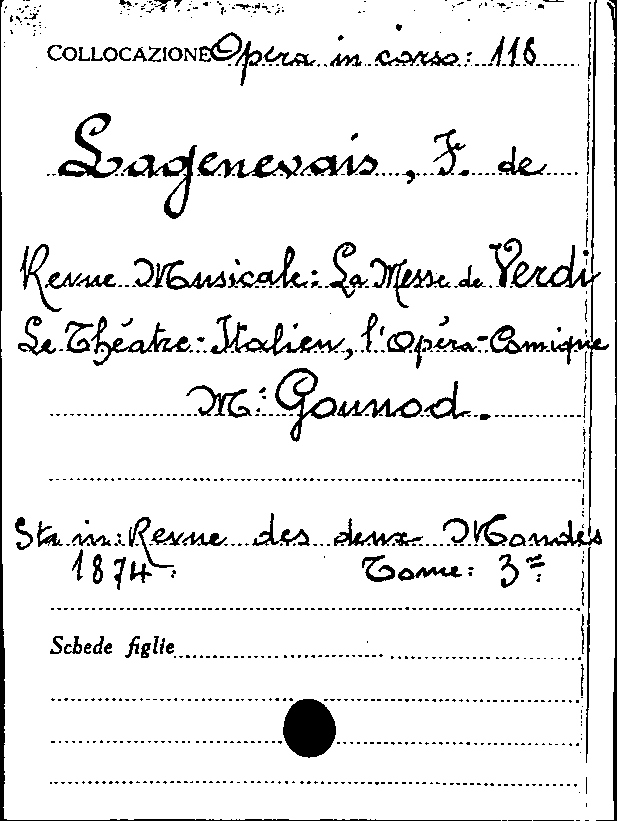 COLLOCAZIONE Opera in corso: 118
Lagenevais, F. de
Revue Musicale: La Messe de Verdi
Le Théatre-Italien, l'Opéra-Comique
M.: Gounod.
Sta in: Revue des deux Mondes
1874. Tome: 3=
Schede figlie